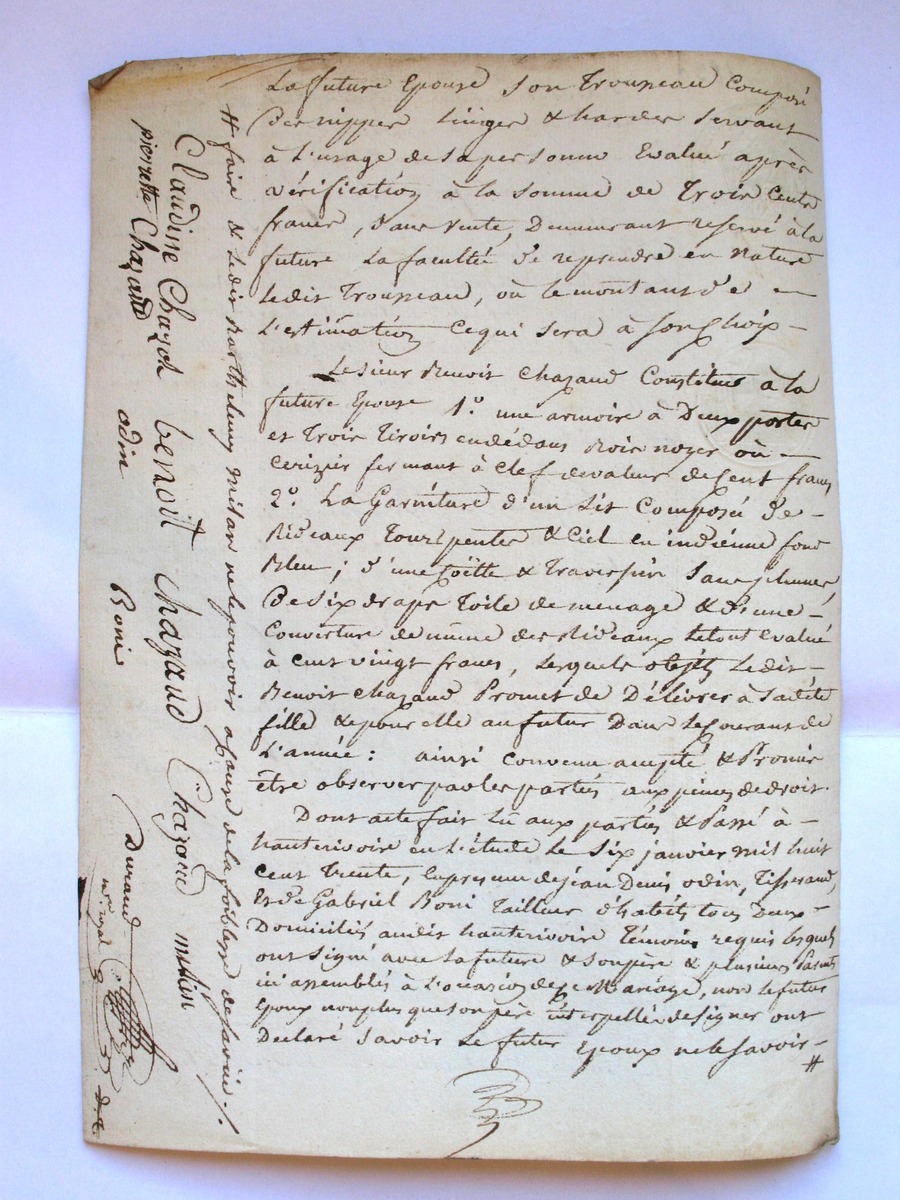 La future Epouse son Trousseau Composé
des nippes linges & hardes servant
à L'usage de sa personne Evalué après
vérification à la somme de Trois Cents
francs, sans vente, Demeurant reservé à la
future La faculté de reprendre en Nature
Ledit Trousseau, où le montant de
L'estimation Ce qui sera à son Choix
Le sieur Benoit Chazaud Constitue à la
future Epouse 1.° une armoire à Deux portes
et Trois Tiroirs en dédans Bois noyer où
Cerizier fermant à Clef de valeur de Cent francs
2.° La Garniture d'un Lit Composé de
Rideaux Tour pentes & Ciel en indiénne fond
Bleu; d'une Coëtte & Traversin sans plumes,
de Six draps Toile de menage & d'une
Couverture de même des Rideaux Le tout Evalué
à Cent vingt francs, lesquels objets Ledit
Benoit Chazaud Promet de Délivrer à sadite
fille & pour elle au futur Dans le Courant de
L'année: ainsi Convenu accepté & Promis
être observer par les parties aux peines de droit.
Dont acte fait Lû aux parties & Passé à
hauterivoire en L'étude Le Six janvier mil huit
Cent Trente, En présence de jean Denis odin, Tisserand,
Et de Gabriel Boni Tailleur d'habits tous Deux
Domiciliés audit hauterivoire Témoins requis lesquels
ont Signé avec La future & son père & plusieurs Parents
ici assemblés à L'occasion de ce Mariage, non le futur
Epoux non plus que son père interpellés de signer ont
Declaré Savoir Le futur Epoux ne le Savoir #
# faire & Ledit Barthelemy milan ne le pouvoir a cause de la foiblesse de sa vüe ./.
Claudine Chazot benoit Chazaud Chazaud milin
pierrette Chazaud odin Boni
Durand
nre royal